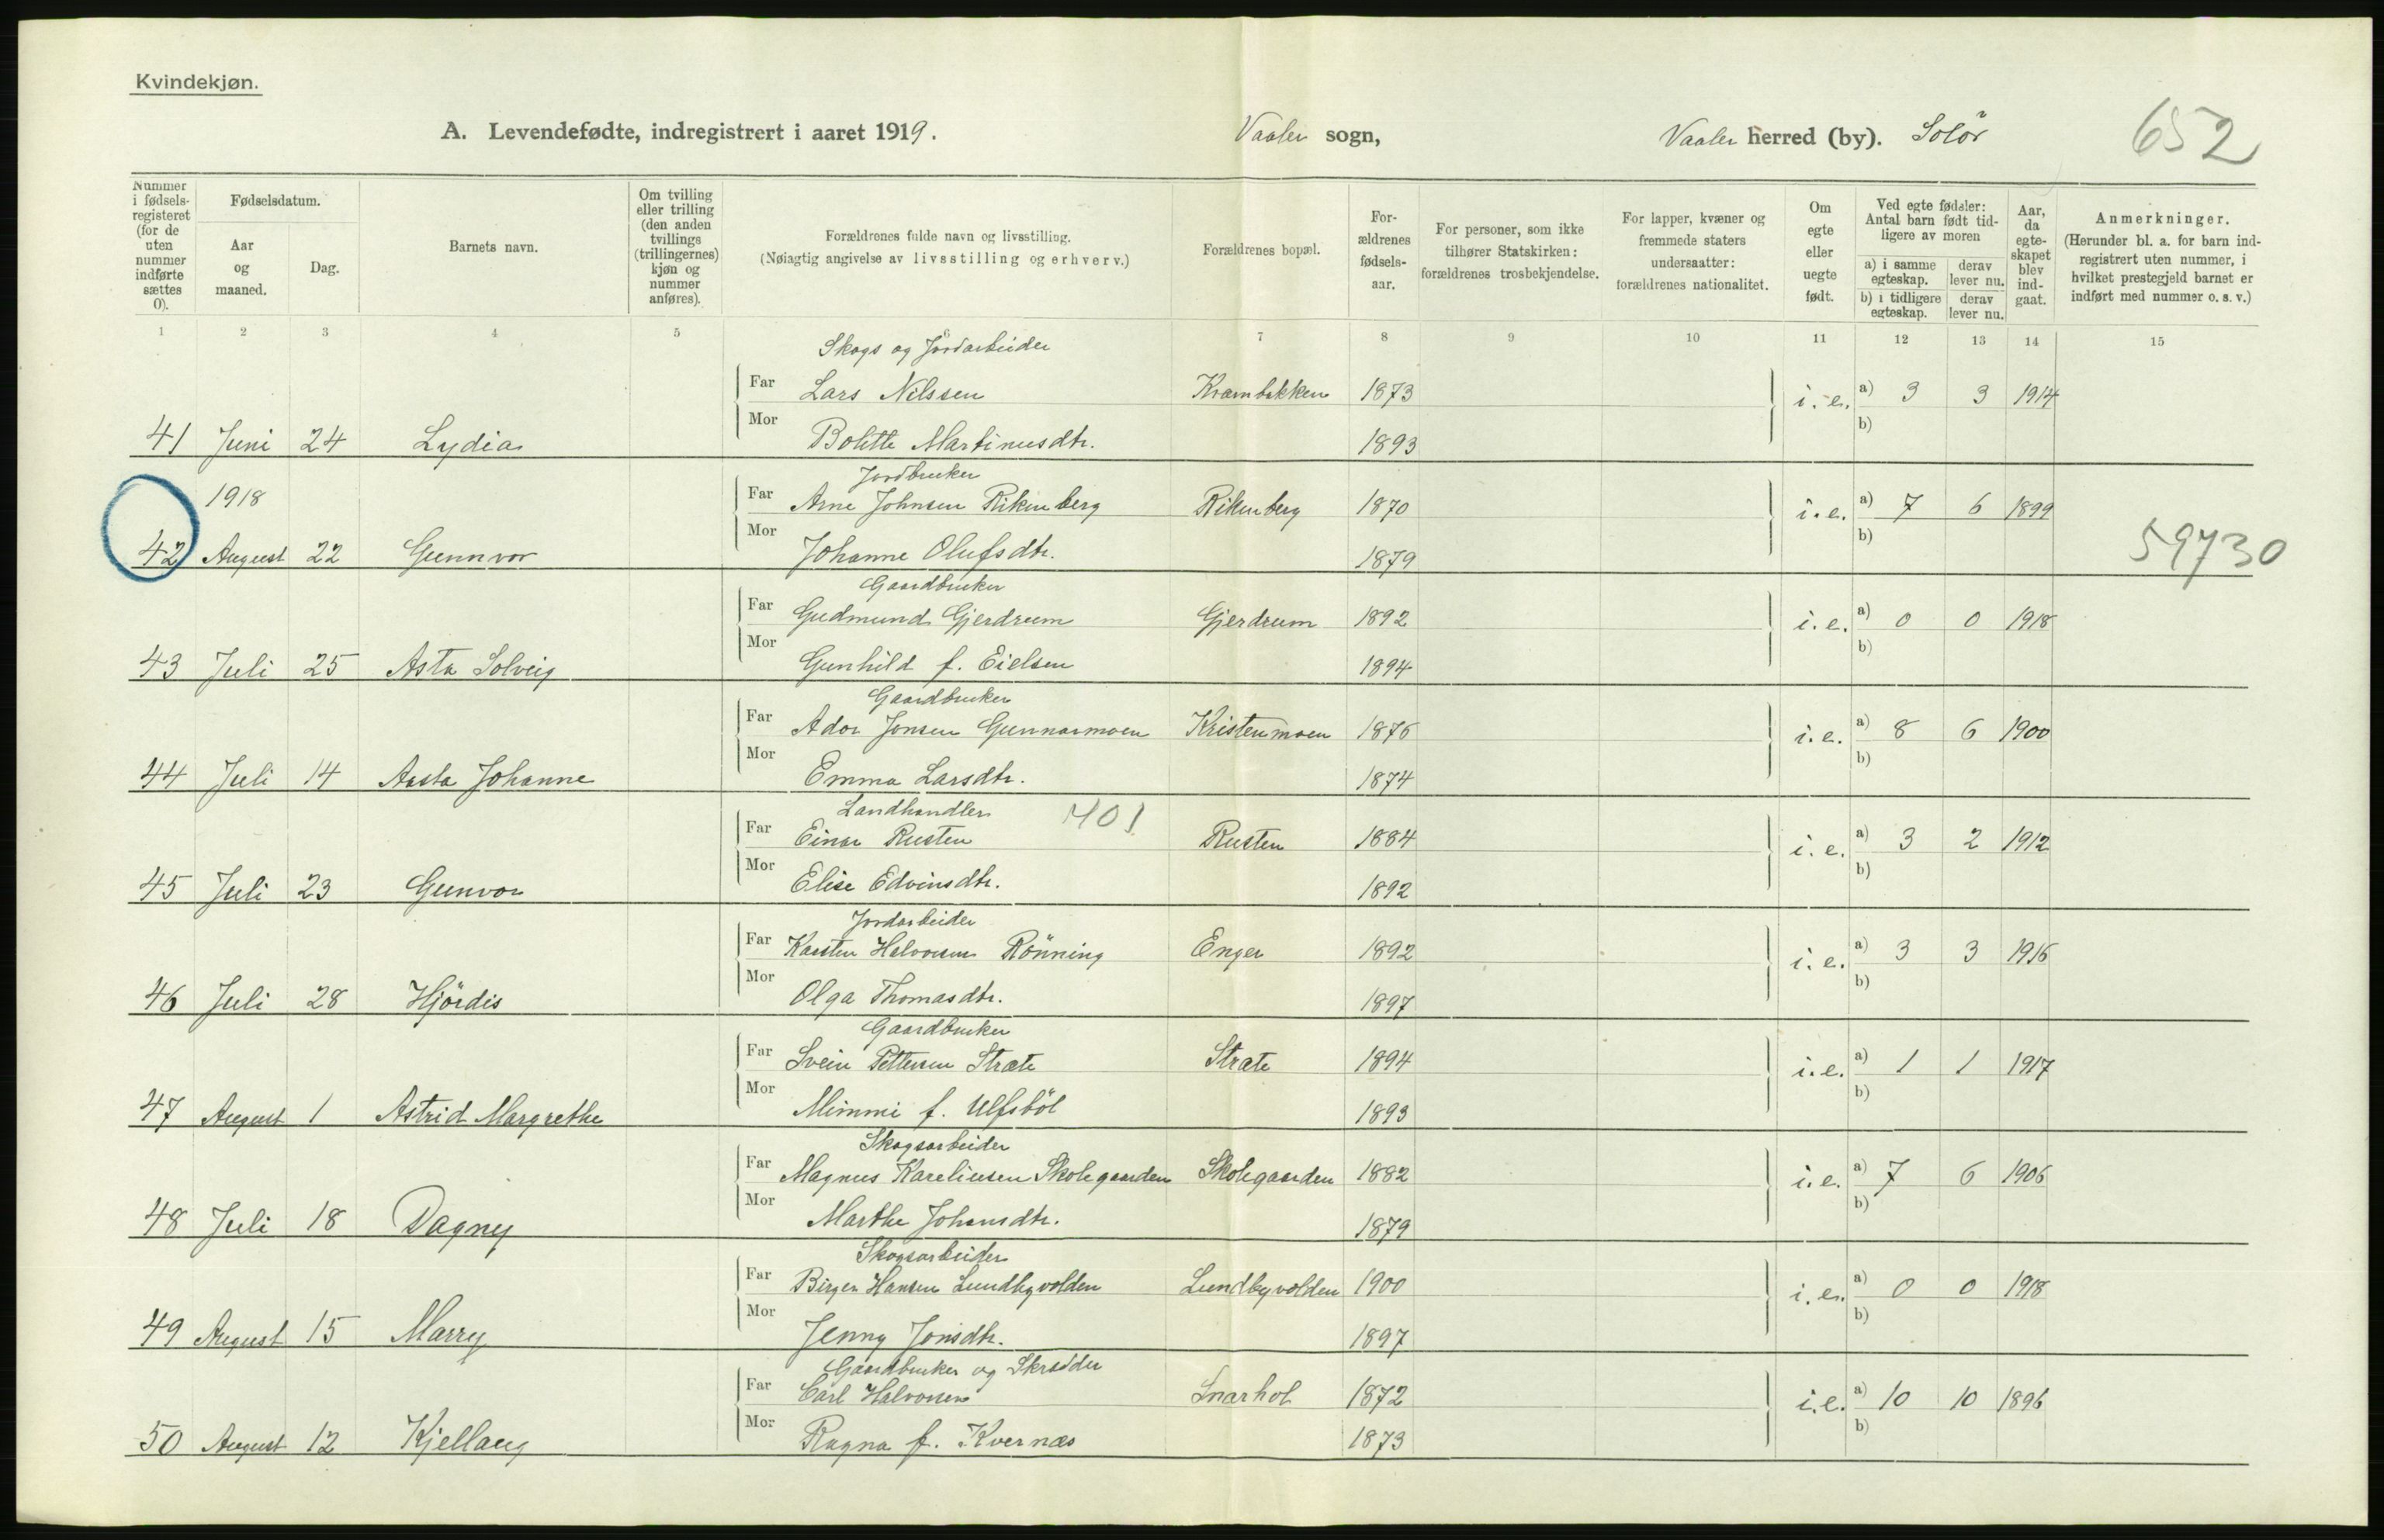 Kvindekjøn.
A. Levendefødte, indregistrert i aaret 1919. Vaaler sogn, Vaaler herred (by). Solör 652
Nummer i fødsels-registeret (for de uten nummer indførte sættes 0).
Fødselsdatum.
Aar og maaned.
Dag.
Barnets navn.
Om tvilling eller trilling (den anden tvillings (trillingernes) kjøn og nummer anføres).
Forældrenes fulde navn og livsstilling.
(Nøiagtig angivelse av livsstilling og erhverv.)
Forældrenes bopæl.
For-ældrenes fødsels-aar.
For personer, som ikke tilhører Statskirken: forældrenes trosbekjendelse.
For lapper, kvæner og fremmede staters undersaatter: forældrenes nationalitet.
Om egte eller uegte født.
Ved egte fødsler: Antal barn født tid-ligere av moren
a) i samme egteskap. derav lever nu.
b) i tidligere egteskap. derav lever nu.
Aar, da egte-skapet blev ind-gaat.
Anmerkninger.
(Herunder bl. a. for barn ind-registrert uten nummer, i hvilket prestegjeld barnet er indført med nummer o. s. v.)
1 2 3 4 5 6 7 8 9 10 11 12 13 14 15
Skogs og Jordarbeider
Far Lars Nilssen Krambækken 1873 i. e. a) 3 3 1914
Mor b)
41 Juni 24 Lydia Bolette Martinusdtr. 1893
Jordbruker
1918 Far Arne Johnsen Rikenberg Rikenberg 1870 i. e. a) 7 6 1899
Mor b)
42 August 22 Gunnvor Johanne Olufsdtr. 1879 59730
Gaardbruker
Far Gudmund Gjerdrum Gjerdrum 1892 i. e. a) 0 0 1918
Mor b)
43 Juli 25 Asta Solveig Gunhild f. Eielsen 1894
Gaardbruker
Far Ador Jonsen Gunnarmoen Kristenmoen 1876 i. e. a) 8 6 1900
Mor b)
44 Juli 14 Aasta Johanne Emma Larsdtr. 1874
Landhandler 1401
Far Einar Rusten Rusten 1884 i. e. a) 3 2 1912
Mor b)
45 Juli 23 Gunvor Elise Edvinsdtr. 1892
Jordarbeider
Far Karsten Halvorsen Rönning Enger 1892 i. e. a) 3 3 1916
Mor b)
46 Juli 28 Hjördis Olga Thomasdtr. 1897
Gaardbruker
Far Svein Pettersen Stræte Stræte 1894 i. e. a) 1 1 1917
Mor b)
47 August 1 Astrid Margrethe Mimmi f. Ulfsböl 1893
Skogsarbeider
Far Magnus Kareliusen Skolegaarden Skolegaarden 1882 i. e. a) 7 6 1906
Mor b)
48 Juli 18 Dagny Marthe Johansdtr. 1879
Skogsarbeider
Far Birger Hansen Lundbyvolden Lundbyvolden 1900 i. e. a) 0 0 1918
Mor b)
49 August 15 Marry Jenny Jonsdtr. 1897
Gaardbruker og Skrædder
Far Carl Halvorsen Snarhol 1872 i. e. a) 10 10 1896
Mor b)
50 August 12 Kjellaug Ragna f. Kvernæs 1873